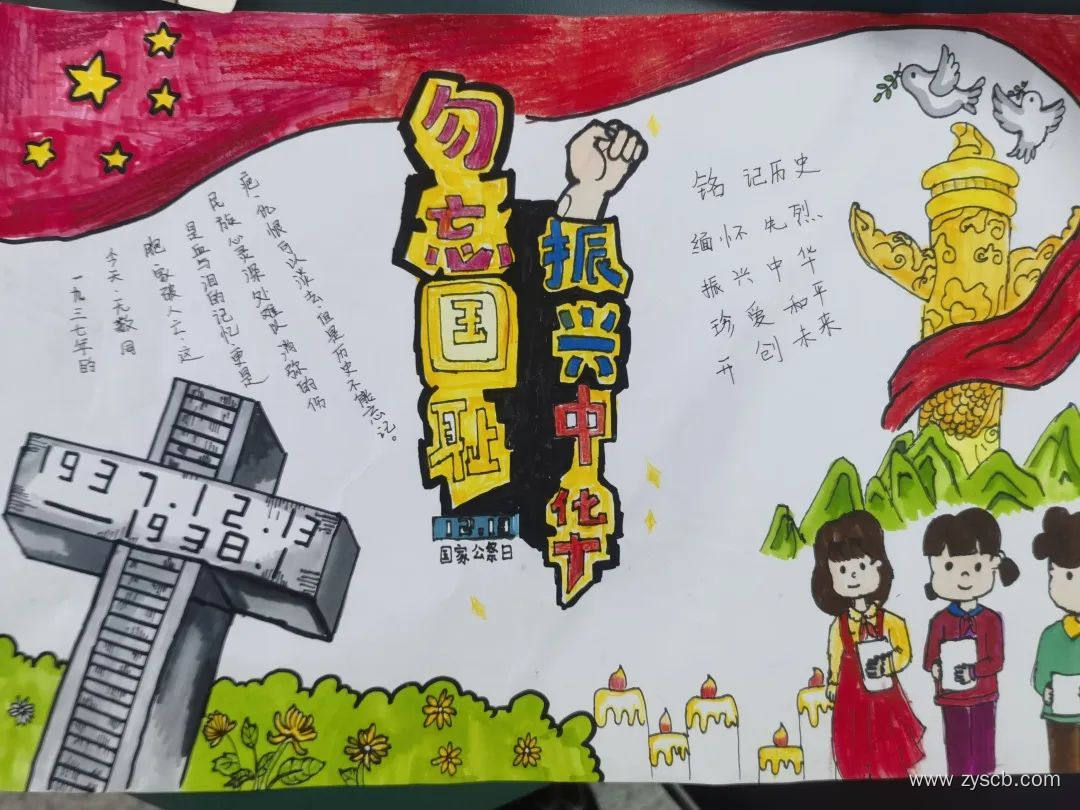 勿忘国耻
振兴中华
12.13
国家公祭日
一九三七年的
今天,无数同
胞家破人亡,这
是血与泪的记忆,更是
民族心灵深处难以消弥的伤
疤,仇恨可以淡去但是历史不能忘记。
铭记历史
缅怀先烈
振兴中华
珍爱和平
开创未来
1937.12.13
—1938.1
www.zyscb.com